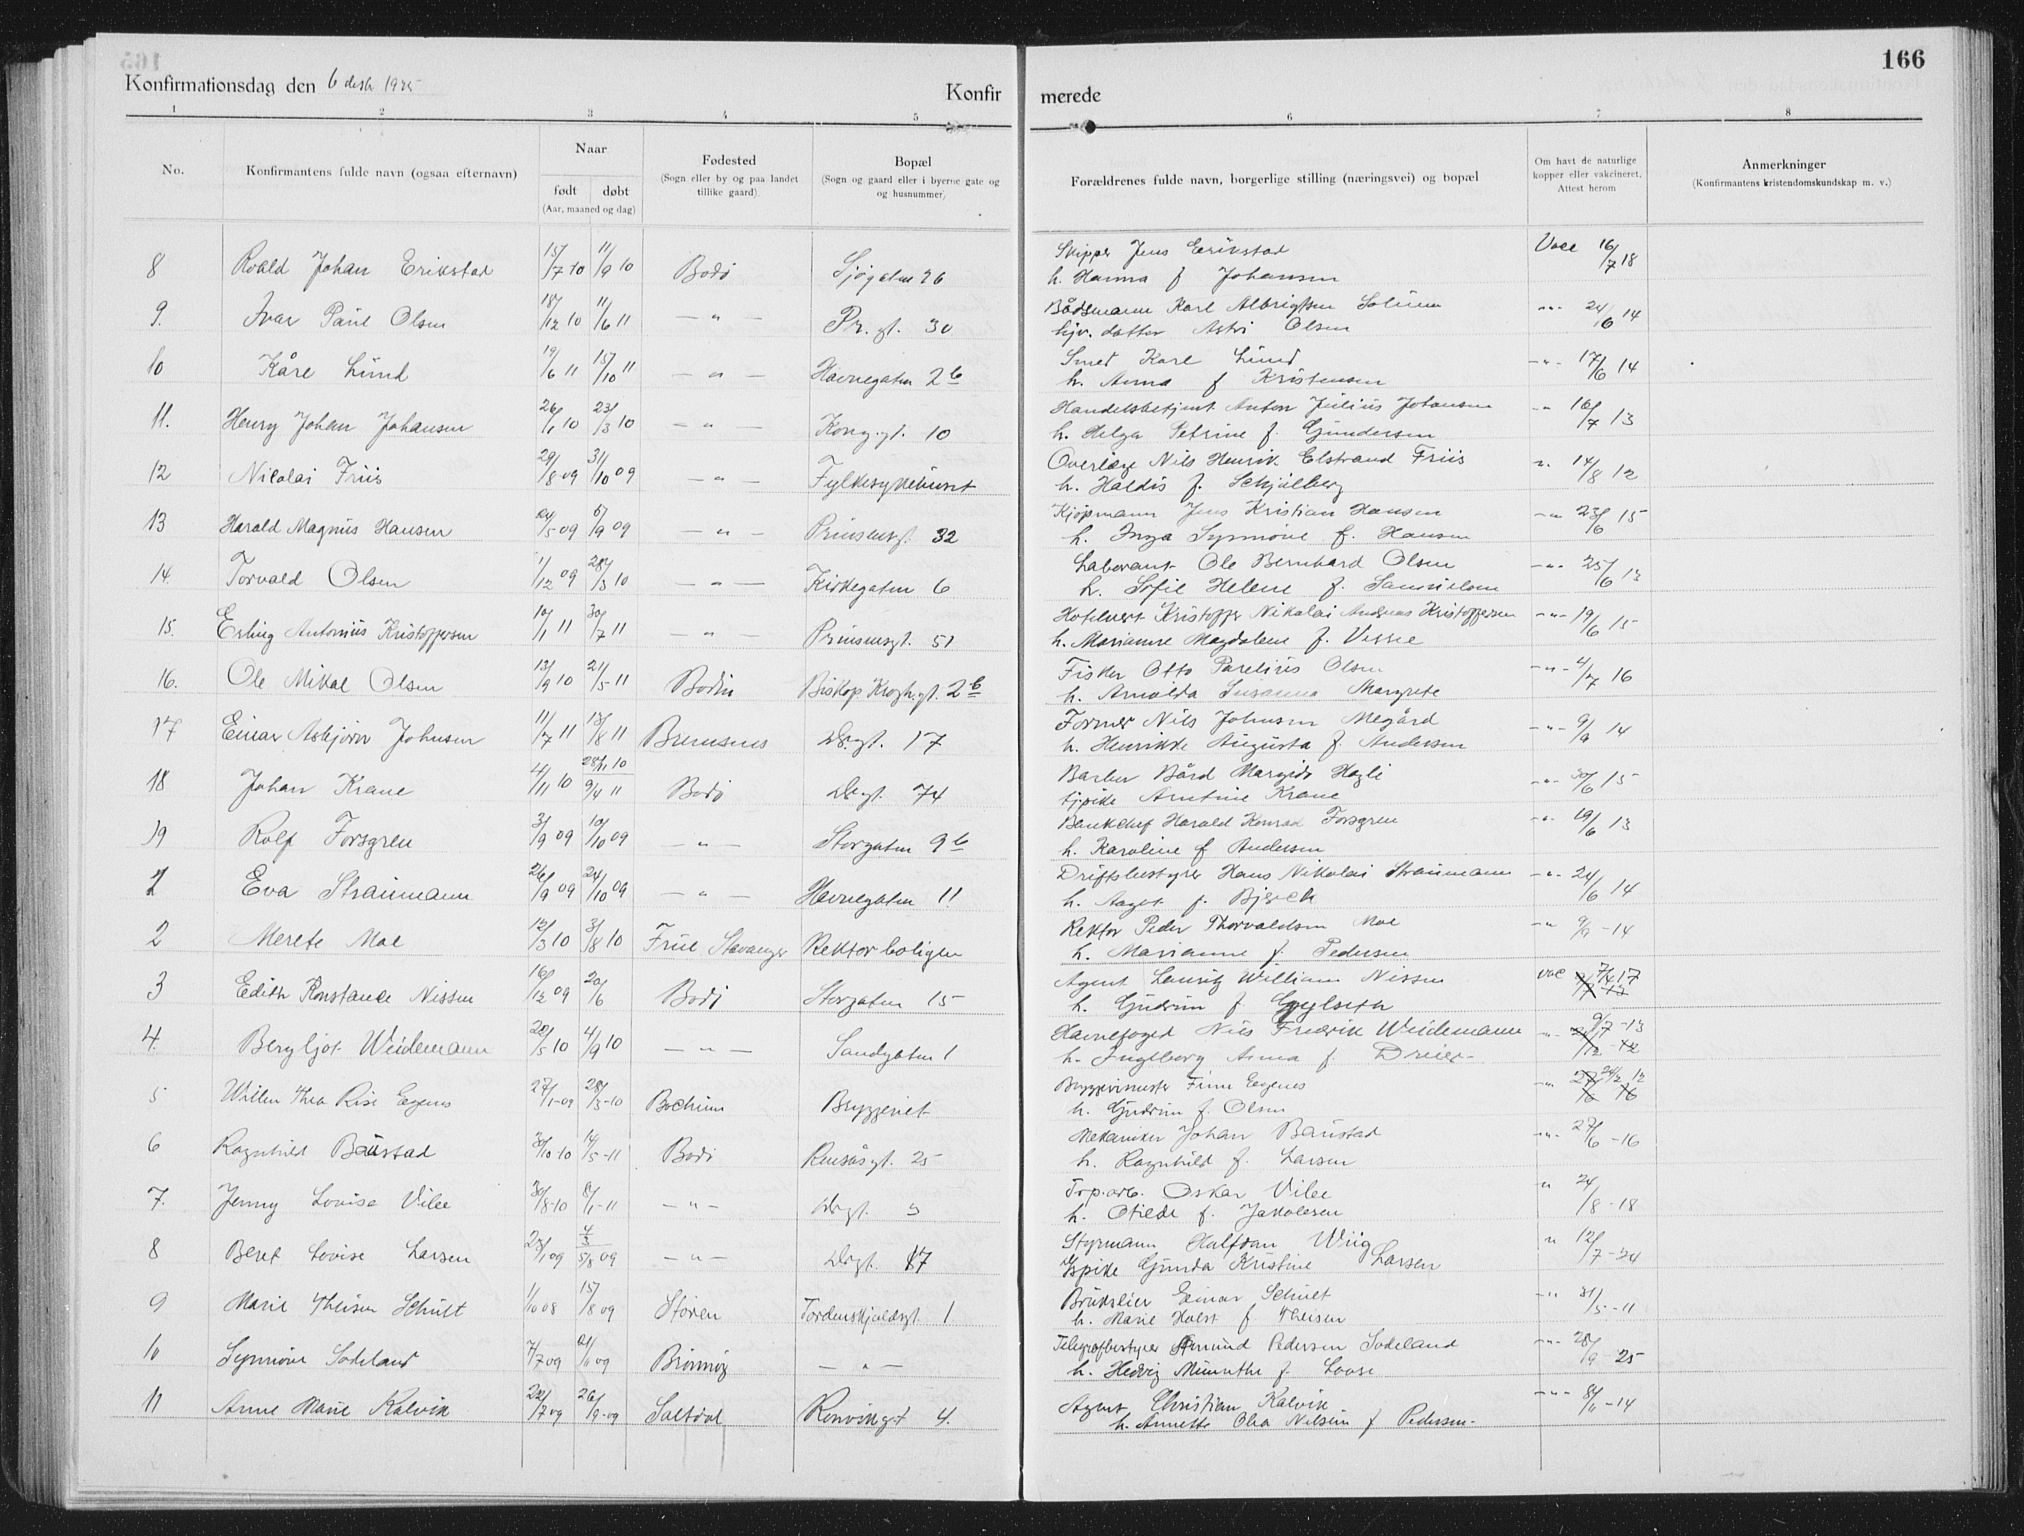 166
Konfirmationsdag den 6 desbr 1925
Konfir merede
1 2 3 4 5 6 7 8
No. Konfirmantens fulde navn (ogsaa efternavn) Naar født døbt (Aar, maaned og dag) Fødested (Sogn eller by og paa landet tillike gaard) Bopæl (Sogn og gaard eller i byerne gate og og husnummer) Forældrenes fulde navn, borgerlige stilling (næringsvei) og bopæl Om havt de naturlige kopper eller vakcineret. Attest herom Anmerkninger (Konfirmantens kristendomskundskap m. v.)
8 Roald Johan Erikstad 15/7 10 11/9 10 Bodø Sjøgaten 26 Skipper Jens Erikstad Vacc 16/7 18
h. Hanna f Johansen
9. Ivar Paul Olsen 18/12 10 11/6 11 — " — Pr. gt. 30 Bådsmann Karl Albrigtsen Solum -"- 24/6 14
hjv. datter Astri Olsen
10 Kåre Lund 19/6 11 15/10 11 — " — Havnegaten 2b Smed Karl Lund -"- 17/6 14
h. Anna f Kristensen
11. Henry Johan Johansen 26/1 10 23/3 10 — " — Kong.gt. 10 Handelsbetjent Anton Julius Johansen -" 16/7 13
h. Helga Petrine f. Gundersen
12 Nikolai Friis 29/8 09 31/10 09 — " — Fylkesykehuset Overlæge Nils Henrik Elstrand Friis " 14/8 12
h. Haldis f. Schjelberg
13 Harald Magnus Hansen 24/5 09 5/9 09 — " — Prinsensgt. 32 Kjøpmann Jens Kristian Hansen -" 23/6 15
h. Inga Synnøve f. Hansen
14. Torvald Olsen 11/12 09 28/3 10 — " — Kirkegaten 6 Laborant Ole Bernhard Olsen -"- 25/6 13
h. Sofie Helene f. Samuelsen
15. Erling Antonius Kristoffersen 10/1 11 30/7 11 — " — Prinsensgt. 51 Hotelvert Kristoffer Nikolai Andreas Kristoffersen -"- 19/6 15
h. Marianne Magdalene f.
16. Ole Mikal Olsen 13/9 10 21/5 11 Bodin Biskop Kroghgt. 2b Fisker Otto Parelius Olsen -"- 4/7 16
h. Arnolda Susanna Margrete
17 Einar Asbjørn Johnsen 11/7 11 13/8 11 Bremsnes Drgt. 17 Former Nils Johnsen Megård -"- 9/9 14
h. Henrikke Augusta f. Andersen
18 Johan Krane 4/11 10 28/11 10 9/4 11 Bodø Drgt. 74 Barber Bård Hagli -"- 30/6 15
tjpike Arntine Krane
19 Rolf Forsgren 3/9 09 10/10 09 — " — Storgaten 9b Bankchef Harald Konrad Forsgren -"- 19/6 13
h. Karoline f Andersen
1 Eva Straumann 26/9 09 24/10 09 — " — Havnegaten 11 Driftsbestyrer Hans Nikolai Straumann -"- 24/6 14
h. Aagot f. Bjerck
2 Merete Moe 12/3 10 3/8 10 Frue Stavanger Rektorboligen Rektor Peder Thorvaldsen Moe -" 9/9 -14
h. Marianne f. Pedersen
3 Edith Konstanse Nissen 16/12 09 20/6 Bodø Storgaten 15 Agent Lauritz William Nissen vac 7/4 17
h. Gudrun f Gylseth
4. Bergljot Weidemann 20/5 10 4/9 10 — " — Sandgaten 1 Havnefoged Nils Fredrik Weidemann -"- 9/7 -13
h. Ingeborg Anna f. Dreier
5 Willen Thea Rise Egenes 27/1-09 28/3-10 Bochum Bryggeriet Bryggerimester Finn Egenes -"- 24/2 12
h. Gudrun f. Olsen
6 Ragnhild Baustad 30/10-10 14/5-11 Bodø Rensåsgt. 25 Mekaniker Johan Baustad -"- 27/6 -16
h. Ragnhild f. Larsen
7. Jenny Lovise Vilee 30/8-10 8/1-11 — " — Drgt. 3 Trp.arb. Oskar Vilee " 24/8 -18
h. Otilde f. Jakobsen
8 Beret Lovise Larsen 23/1 09 5/8 09 — " — Drgt. 17 Styrmann Halfdan Wiig " 12/7 -24
Gpike Gunda Kristine Larsen
9 Marie Theisen Schult 1/10 08 15/8 09 Støren Tordenskjoldsgt. 1 Brukseier Einar Schult -" 31/5 -11
h. Marie Holst f Theisen
10 Synnøve Sodeland 7/7 09 21/11 09 Brønnøy — " — Telegrafbestyrer Amund Pedersen Sodeland -"- 28/9 -25
h. Hedvig Munthe f. Loose
11 Anne Marie Kalvik 22/7 09 26/9-09 Saltdal Rønvingst 4. Agent Christian Kalvik -"- 8/11 -14
h. Annette Olea Nilsen f Pedersen